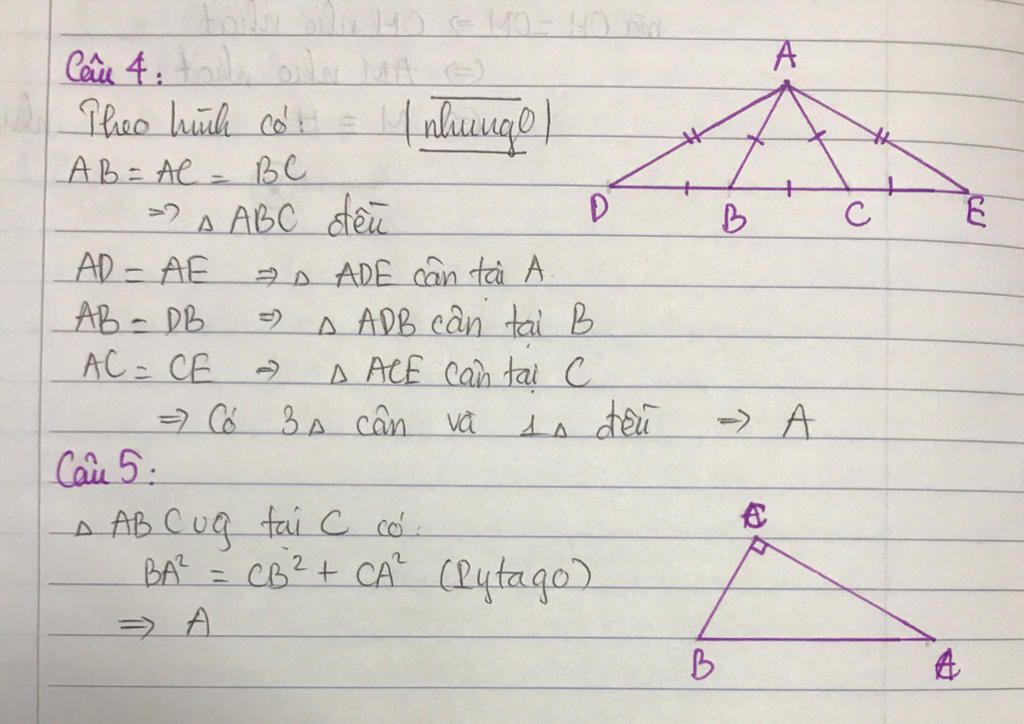 Câu 4:
Theo hình có: | nhungo |
AB = AC = BC
=> △ ABC đều
AD = AE => △ ADE cân tại A
AB = DB => △ ADB cân tại B
AC = CE => △ ACE cân tại C
=> Có 3△ cân và 1△ đều => A
A
D B C E
Câu 5:
△ ABC vg tại C có:
BA² = CB² + CA² (Pytago)
=> A
C
B A